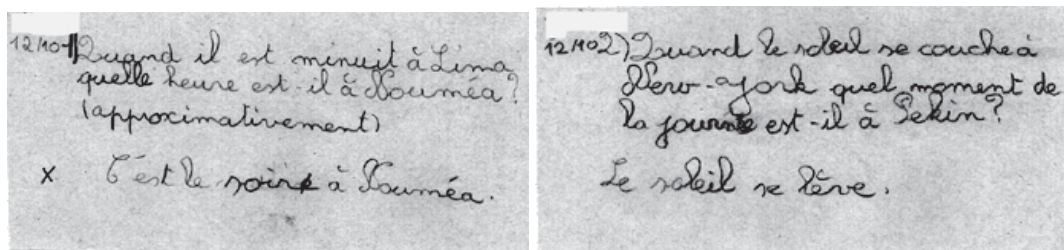 12/10 1) Quand il est minuit à Lima
quelle heure est-il à Nouméa?
(approximativement)
x C'est le soir à Nouméa.
12/10 2) Quand le soleil se couche à
New-York quel moment de
la journée est-il à Pekin?
Le soleil se lève.